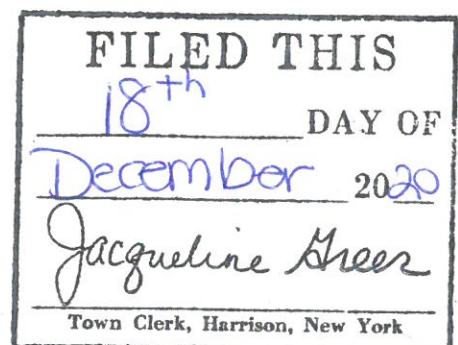 FILED THIS
18th DAY OF
December 2020
Jacqueline Greer
Town Clerk, Harrison, New York